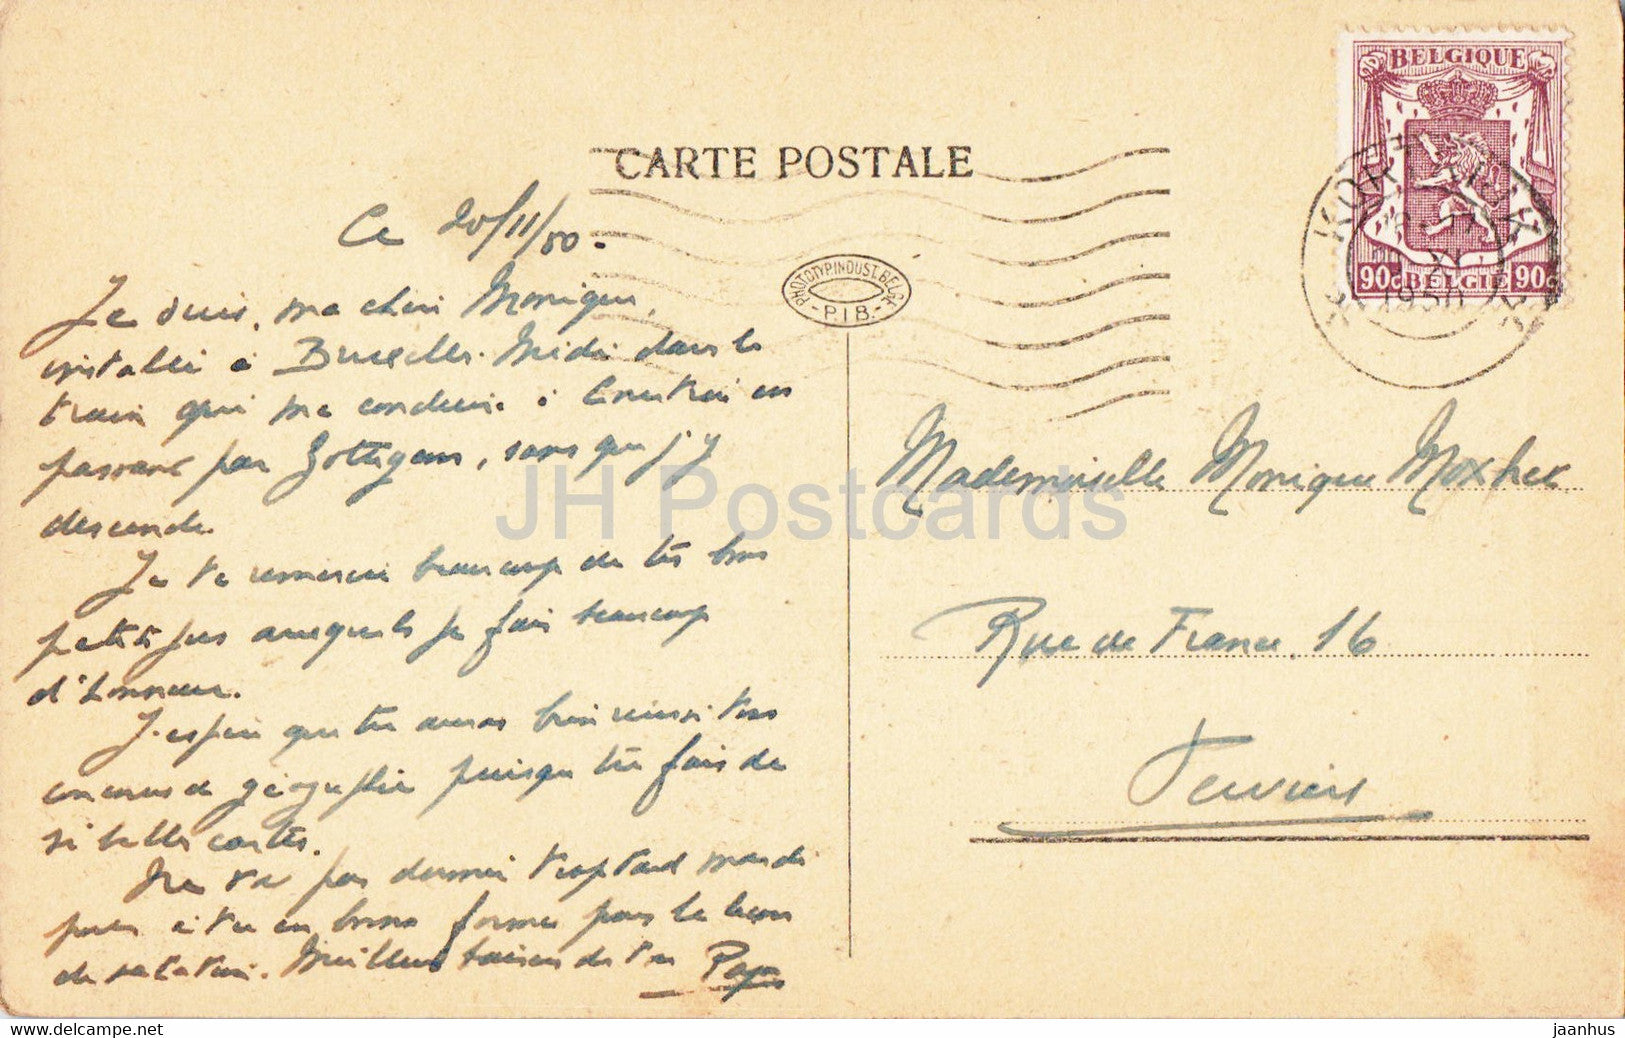 CARTE POSTALE
BELGIQUE
90c BELGIE 90c
KORTRIJK
1950
PHOTOTYP. INDUST. BELGE
- P.I.B. -
Ce 20/11/50.
Je suis, ma chère Monique,
installé à Bruxelles-Midi dans le
train qui me conduira à Courtrai en
passant par Zottegem, sans que j'y
descende.
Je te remercie beaucoup de tes bons
petits jus auxquels je fais beaucoup
d'honneur.
J'espère que tu auras bien réussi ton
concours de géographie puisque tu fais de
si belles cartes.
Ne va pas dormir trop tard mardi
pour être en bonne forme pour la leçon
de natation. Meilleurs baisers de ton Papa
Mademoiselle Monique Moxhet
Rue de France, 16
Verviers
JH Postcards
www.hippostcard.com/store/jh-postcards
jaanhus